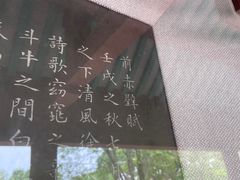 前赤壁賦
壬戌之秋七
之下清風徐
詩歌窈窕之
斗牛之間白